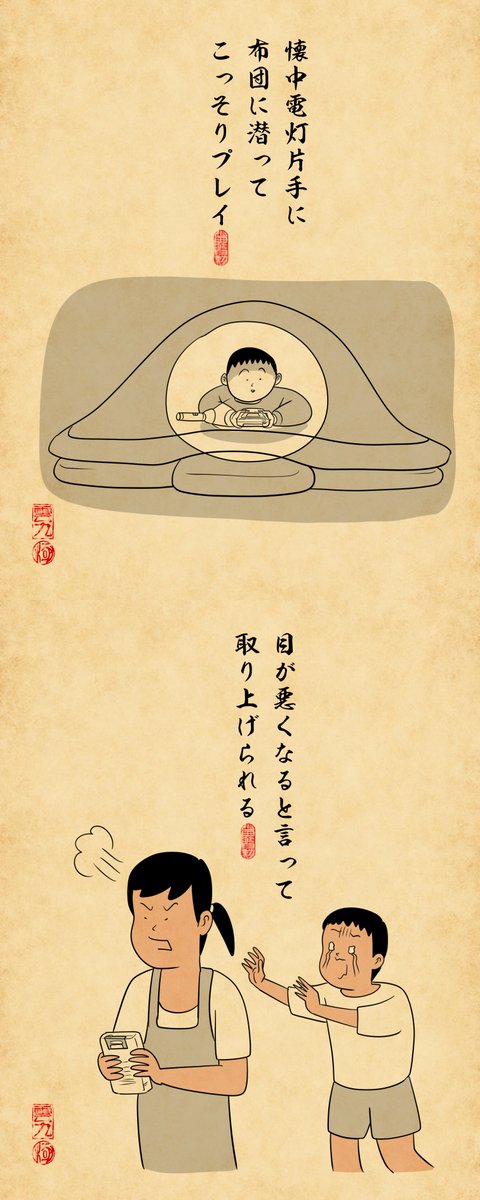 懐中電灯片手に
布団に潜って
こっそりプレイ
目が悪くなると言って
取り上げられる